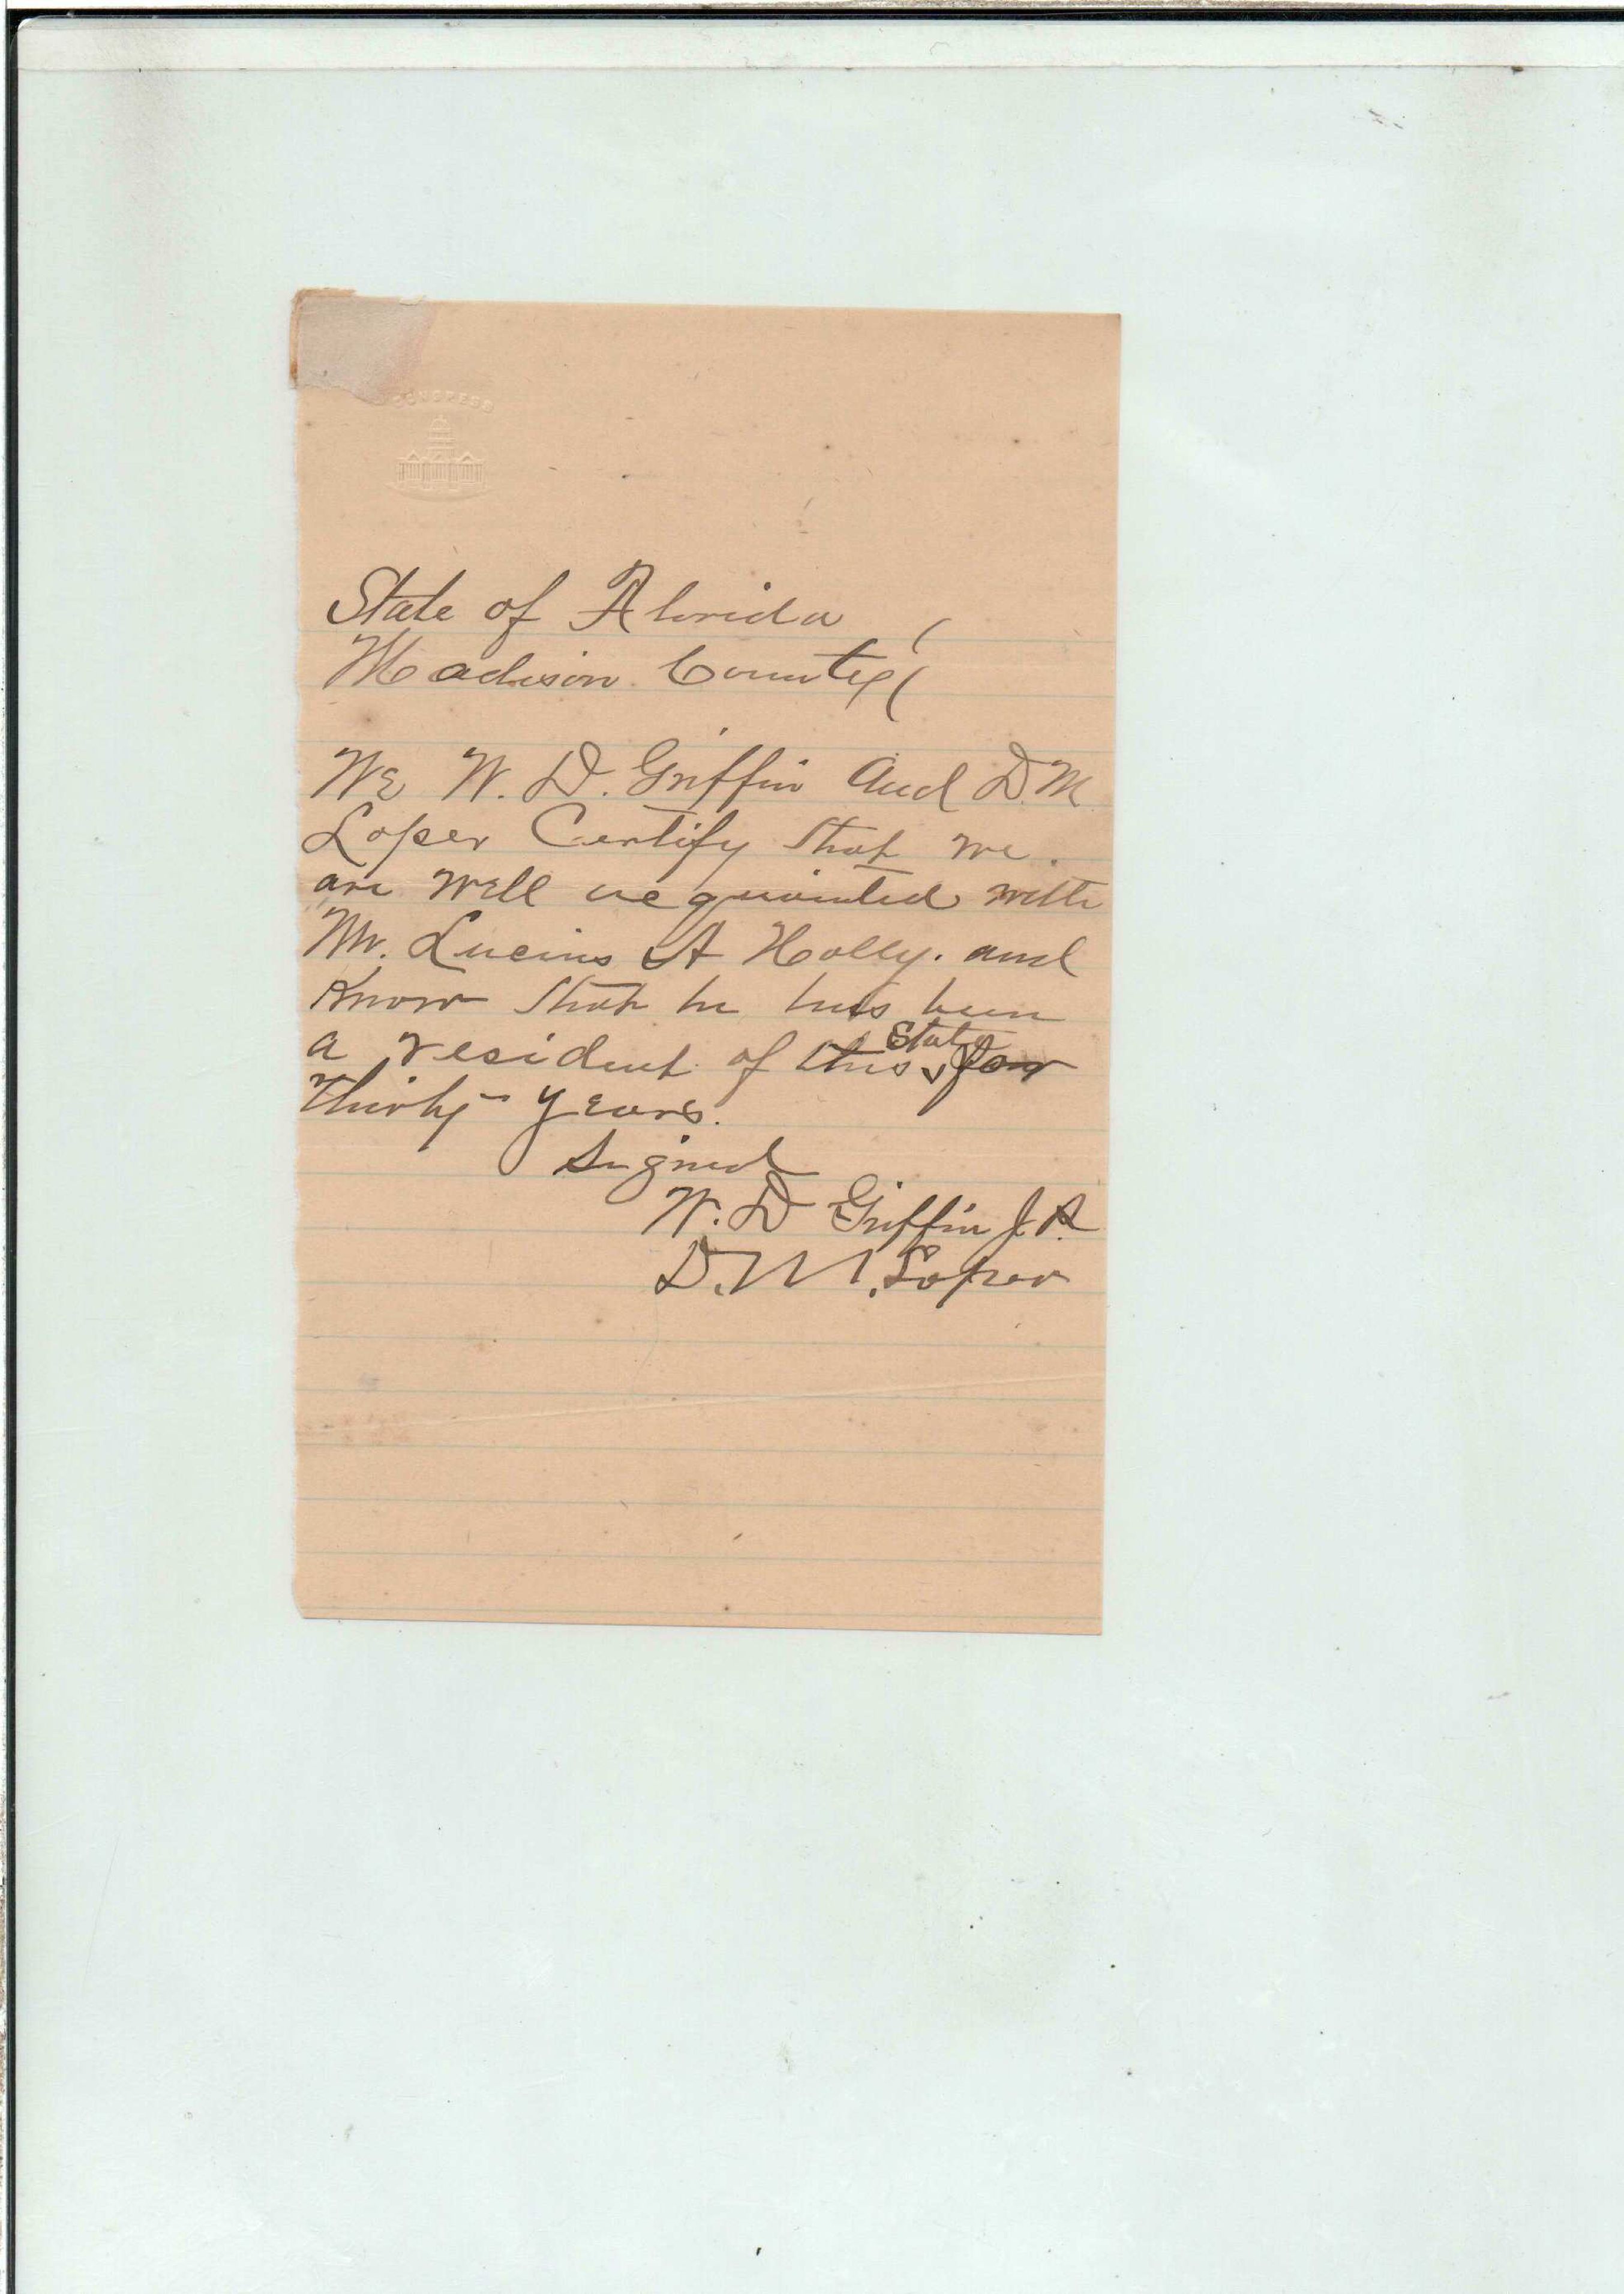 CONGRESS
State of Florida (
Madison County (
We W. D. Griffin and D. M
Loper Certify that we.
are well acquainted with
Mr. Lucius A Holly. and
Know that he has been
a resident of this State for
Thirty years.
Signed
W. D Griffin J. P.
D. M. Loper